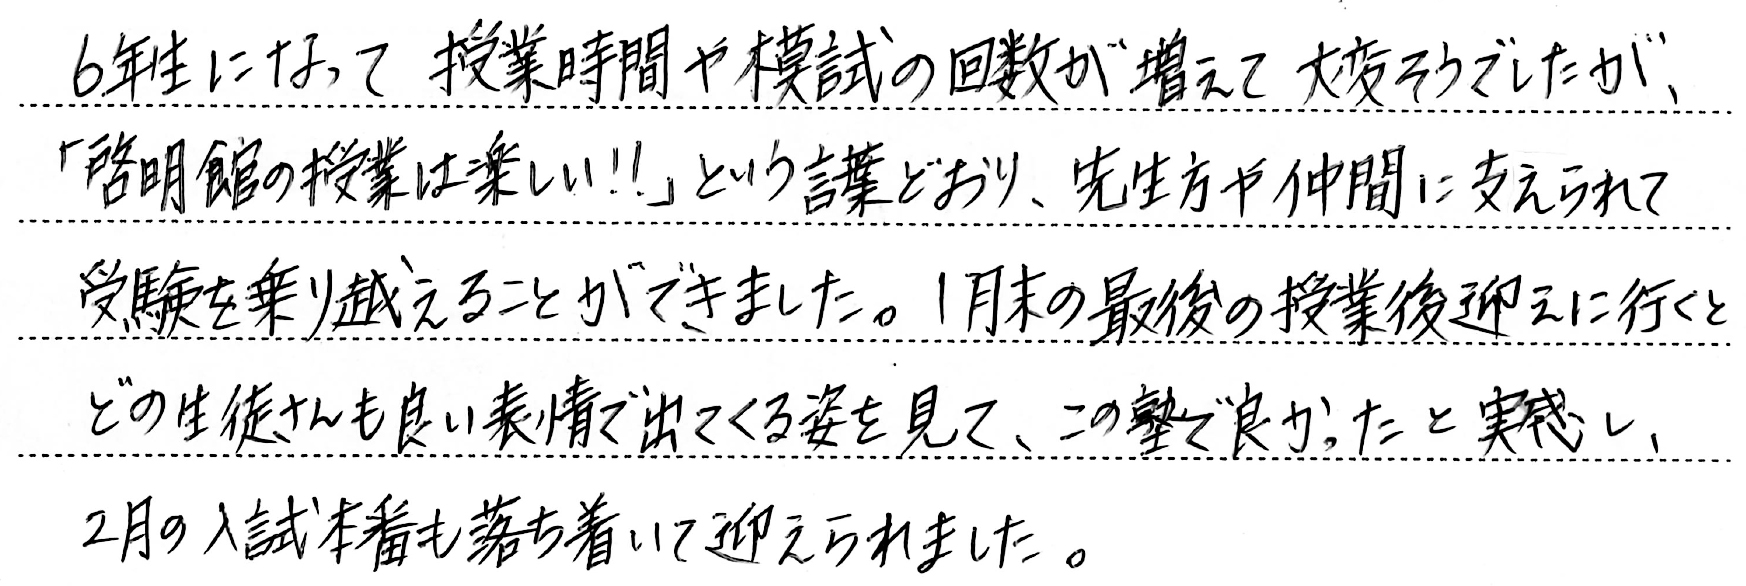 6年生になって 授業時間や模試の回数が増えて大変そうでしたが、
「啓明館の授業は楽しい!!」という言葉どおり、先生方や仲間に支えられて
受験を乗り越えることができました。1月末の最後の授業後迎えに行くと
どの生徒さんも良い表情で出てくる姿を見て、この塾で良かったと実感し、
2月の入試本番も落ち着いて迎えられました。